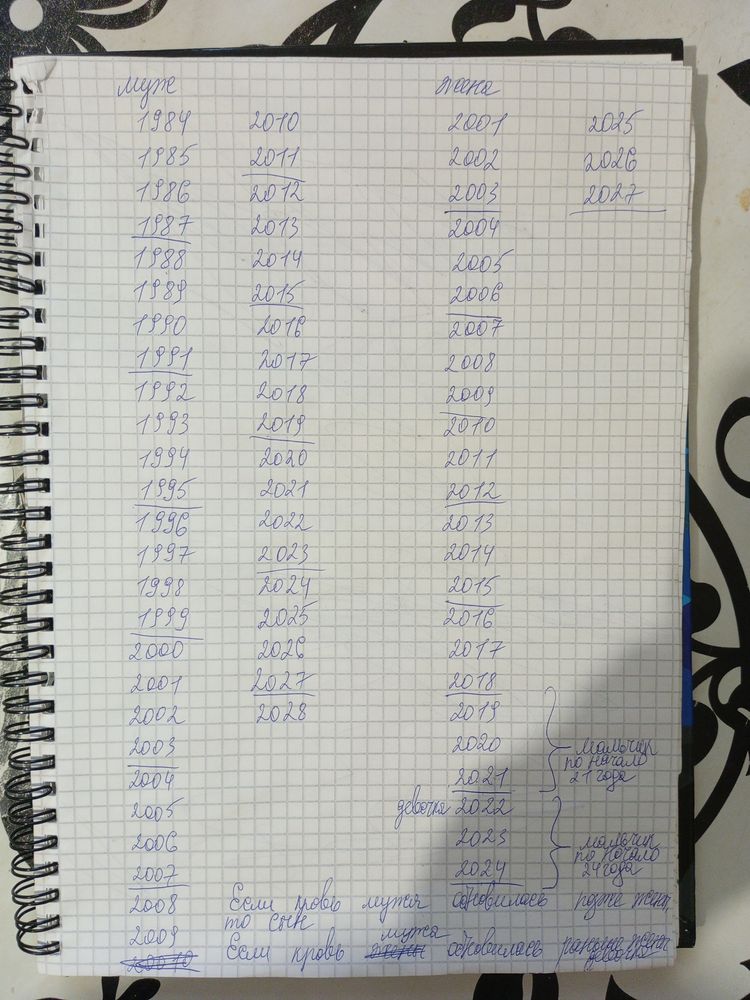 муж жена
1984 2010 2001 2025
1985 2011 2002 2026
1986 2012 2003 2027
1987 2013 2004
1988 2014 2005
1989 2015 2006
1990 2016 2007
1991 2017 2008
1992 2018 2009
1993 2019 2010
1994 2020 2011
1995 2021 2012
1996 2022 2013
1997 2023 2014
1998 2024 2015
1999 2025 2016
2000 2026 2017
2001 2027 2018
2002 2028 2019
2003 2020 мальчик
по начало
2004 2021 21 года
2005 девочка 2022
2006 2023 мальчик
по начало
2007 2024 24 года
2008 Если кровь мужа обновилась позже жены,
то сын
2009 Если кровь мужа обновилась раньше жены
девочка